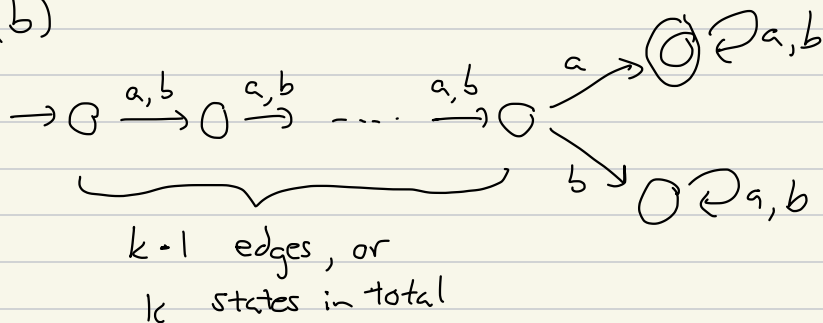 b)
a, b
a, b
a, b
a
a, b
b
a, b
k - 1 edges, or
k states in total